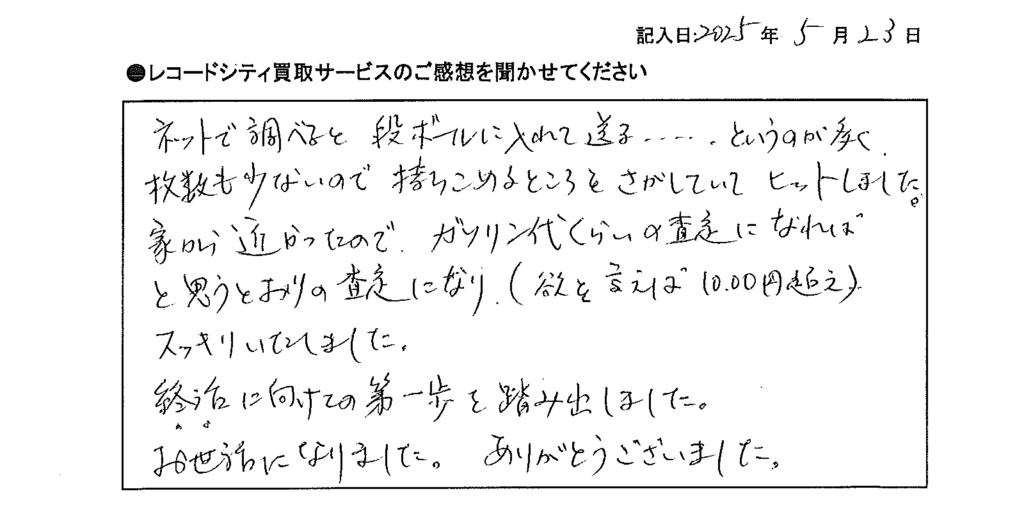 記入日:2025年 5月 23日
●レコードシティ買取サービスのご感想を聞かせてください
ネットで調べると 段ボールに入れて送る‥‥‥というのが多く、
枚数も少ないので 持ちこめるところをさがしていて ヒットしました。
家から近かったので、ガソリン代くらいの査定になれば
と思うとおりの査定になり、(欲を言えば10.00円超え)
スッキリいたしました。
終活に向けての第一歩を踏み出しました。
お世話になりました。 ありがとうございました。